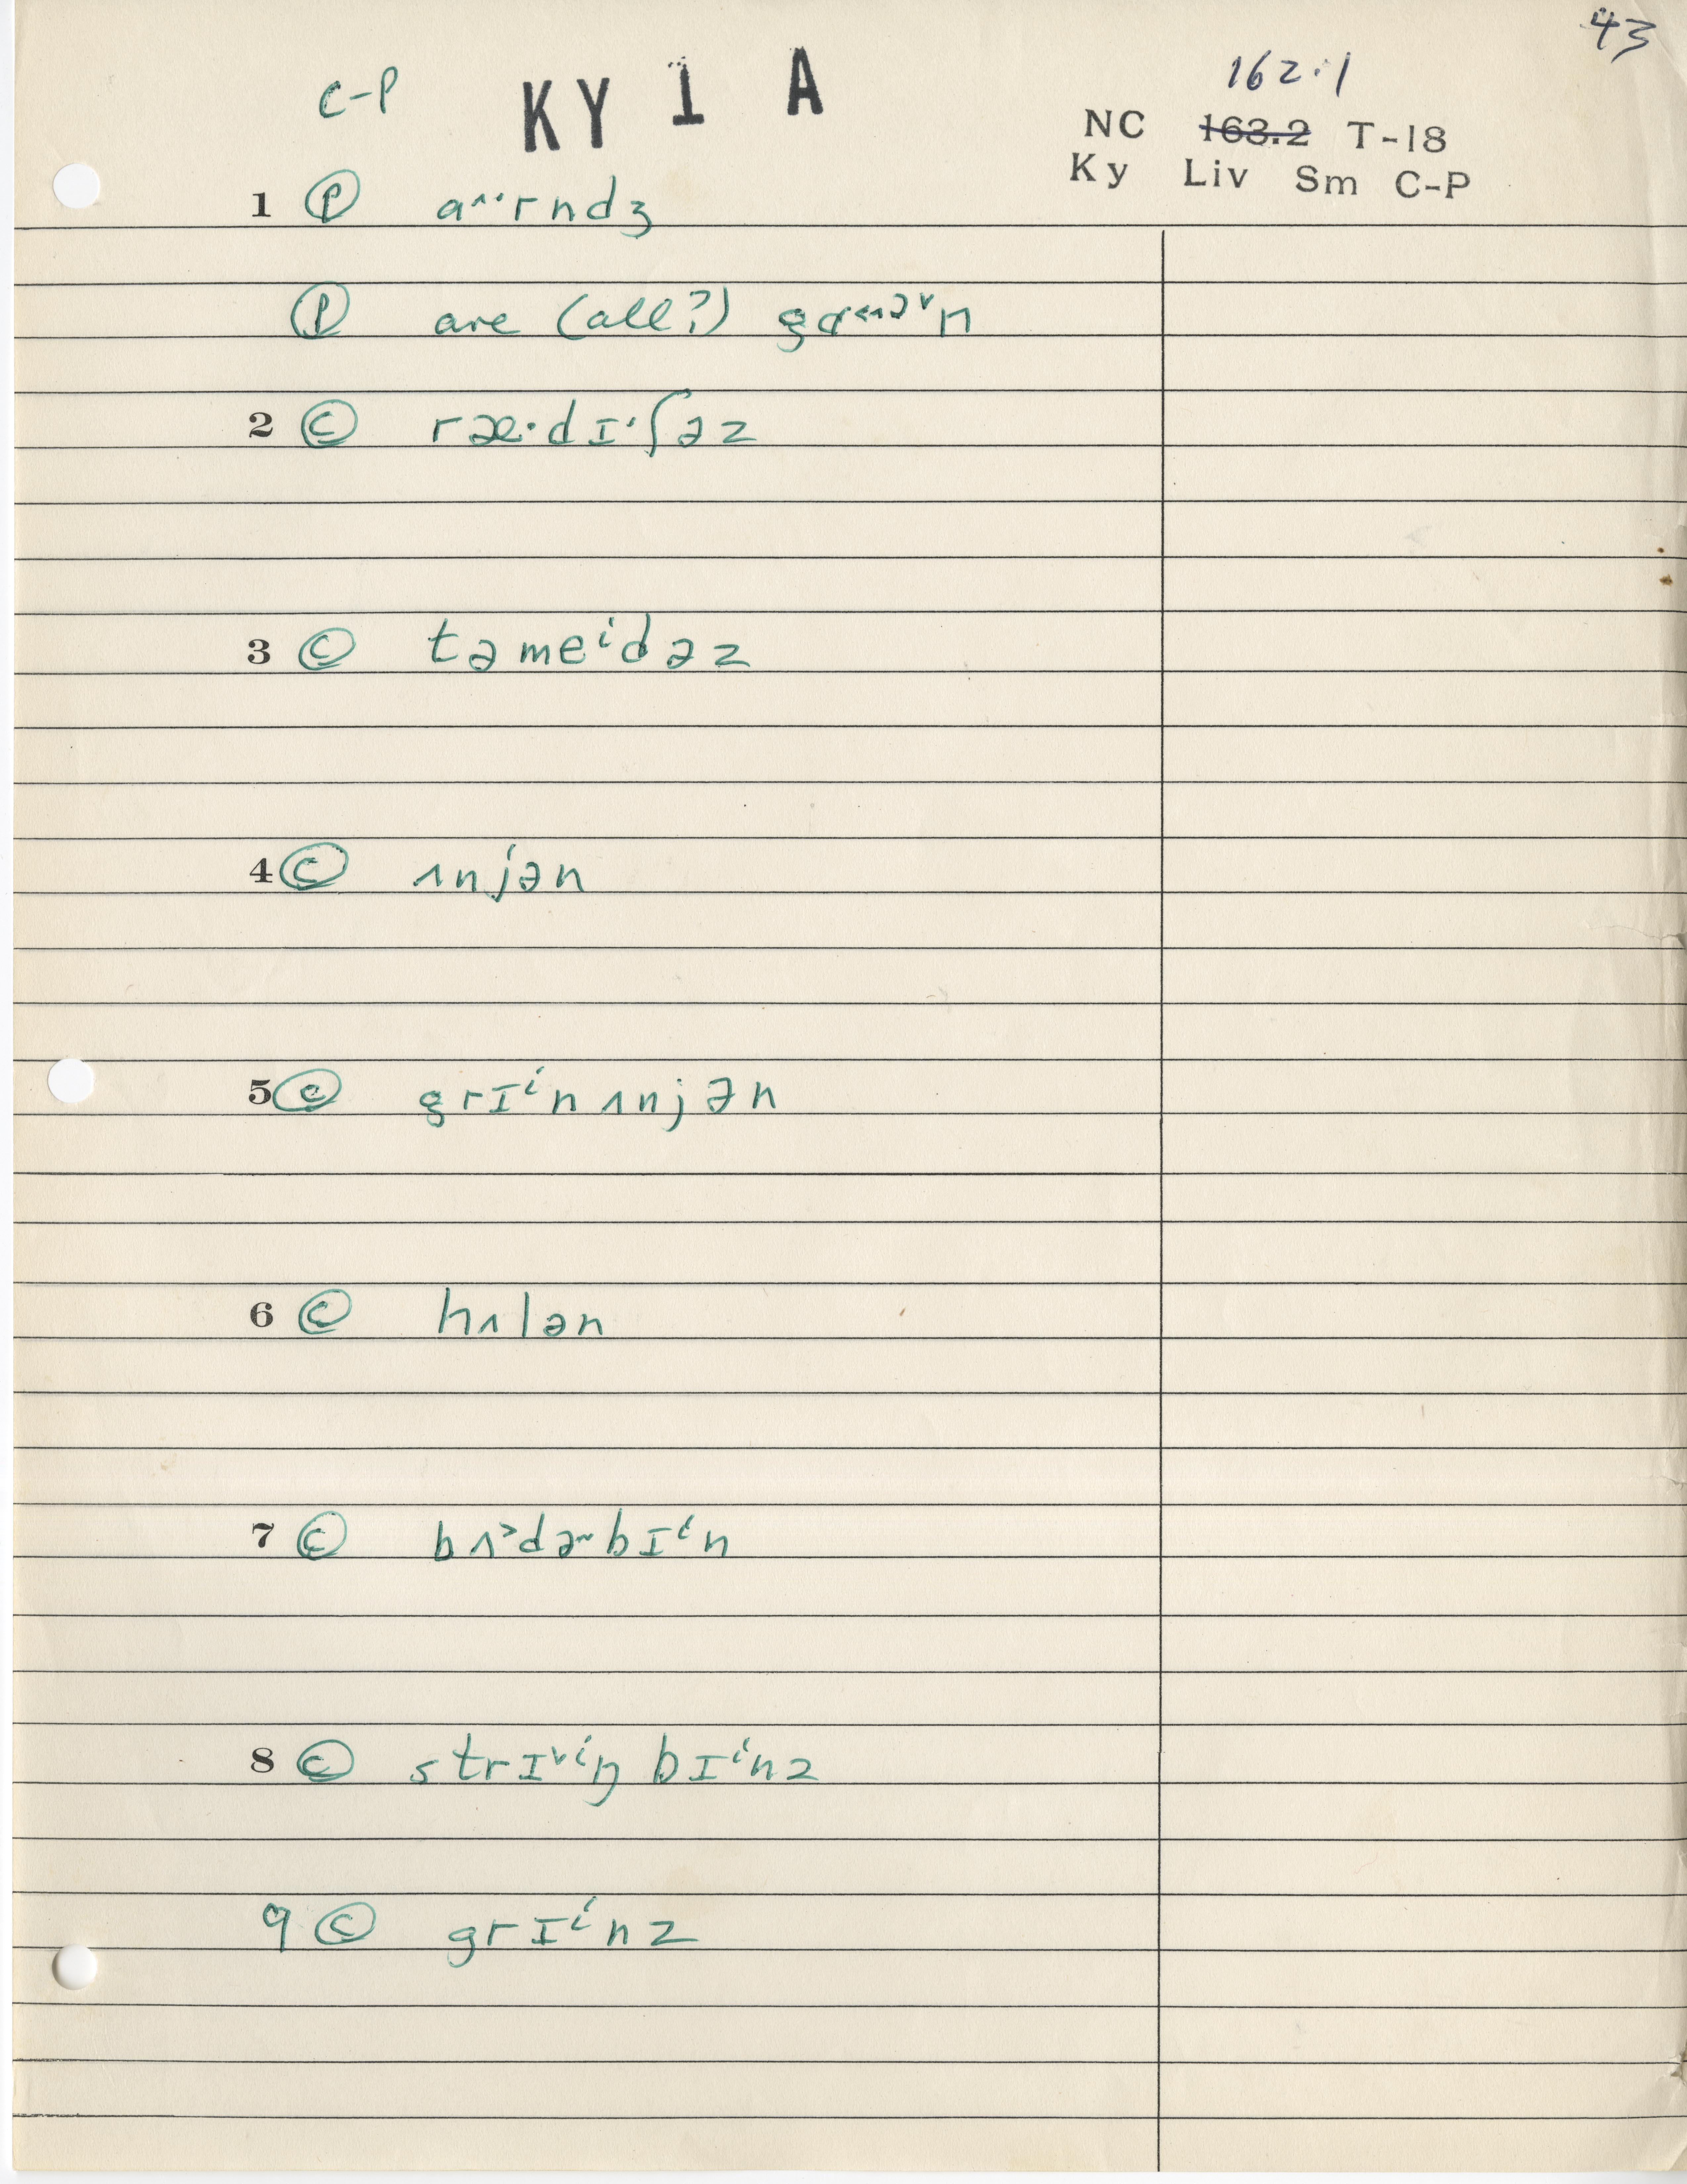 43
C-P KY 1 A
162.1
NC 163.2 T-18
Ky Liv Sm C-P
1 Ⓟ
Ⓟ are (all?)
2 Ⓒ ræ·dɪ·ʃəz
3 Ⓒ təmeⁱdəz
4 Ⓒ ʌnjən
5 Ⓒ grɪⁱn ʌnjən
6 Ⓒ hʌlən
7 Ⓒ bʌ˃dɚbɪⁱn
8 Ⓒ strɪ˅ⁱŋ bɪⁱnz
9 Ⓒ grɪⁱnz